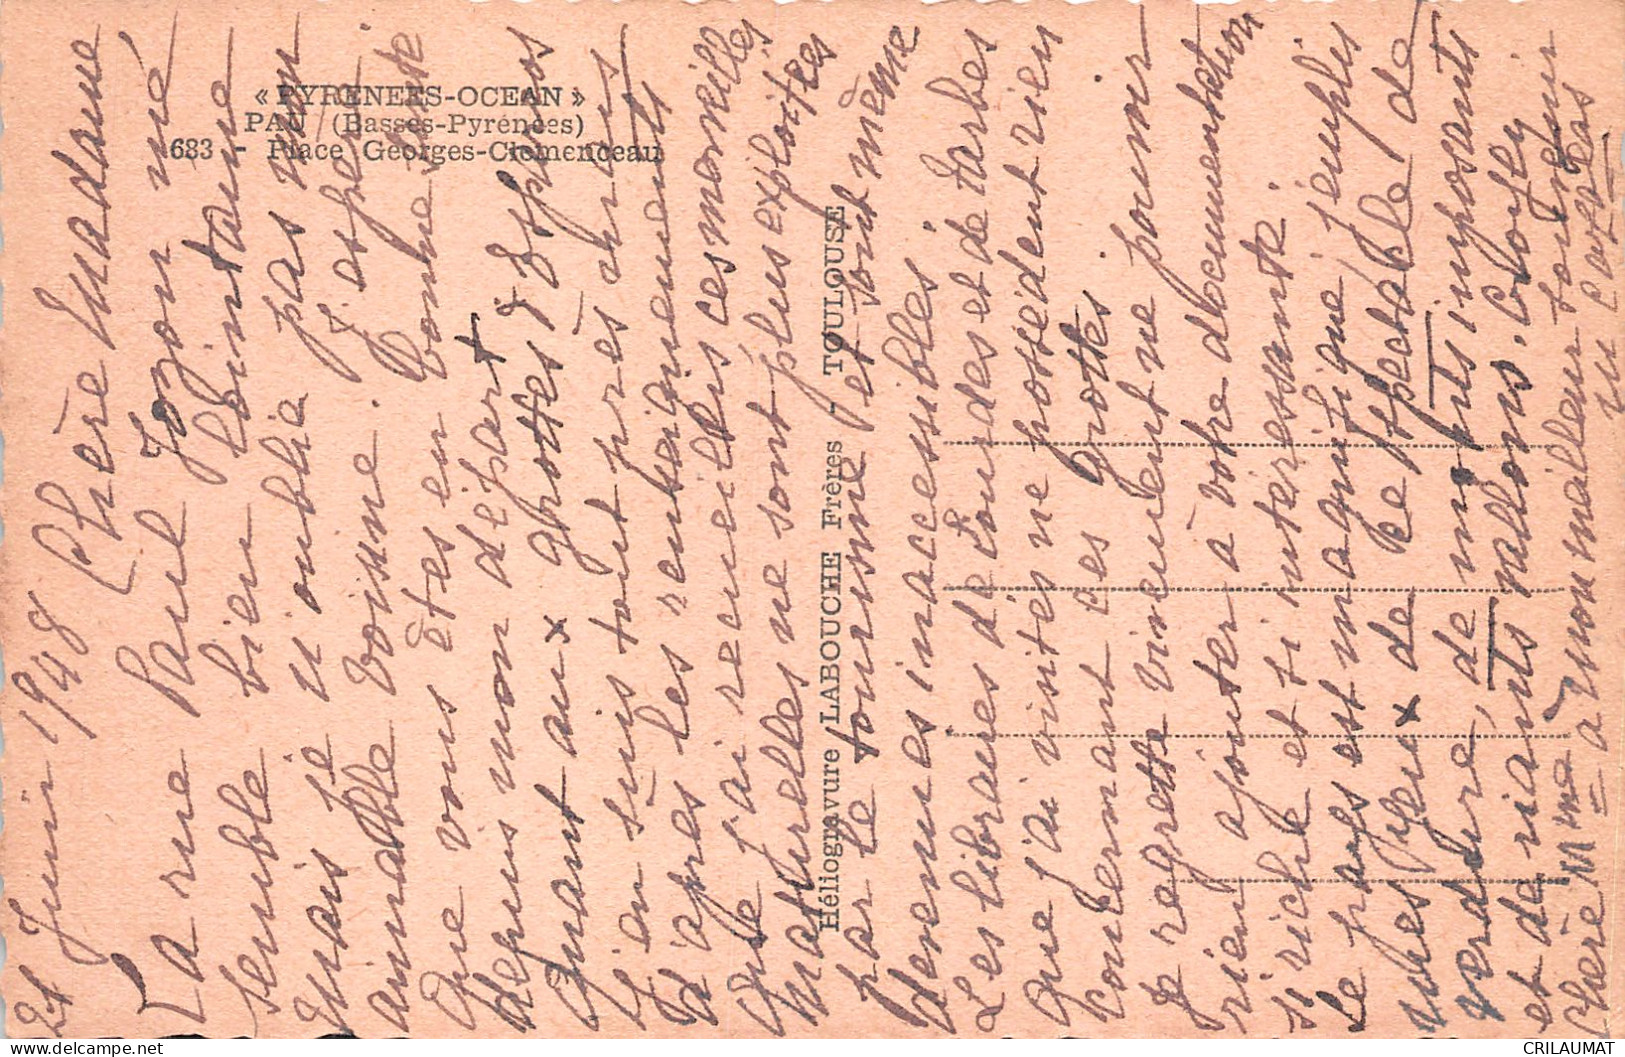 « PYRENEES-OCEAN »
PAU (Basses-Pyrénées)
683 - Place Georges-Clemenceau
Héliogravure LABOUCHE Frères - TOULOUSE
21 Juin 1948 Chère Madame
La rue Paul Jozon me
semble bien lointaine
Mais je n'oublie pas mon
aimable voisine. J'espère
Que vous êtes en bonne santé
depuis mon départ
Quant aux grottes
j'en suis tout près mais
d'après les renseignements
Que j'ai recueillis ces merveilles
Naturelles ne sont plus exploitées
par le tourisme et sont même
devenues inaccessibles.
Les libraires de Lourdes et de Tarbes
Que j'ai visités ne possèdent rien
concernant ces grottes.
Je regrette vivement ne pouvoir
rien ajouter à votre documentation
si riche et si intéressante.
Le pays est magnifique j'emplis
mes yeux de ce spectacle de
verdure, de monts imposants
et de riants vallons. Croyez
Chère Mme à mon meilleur souvenir